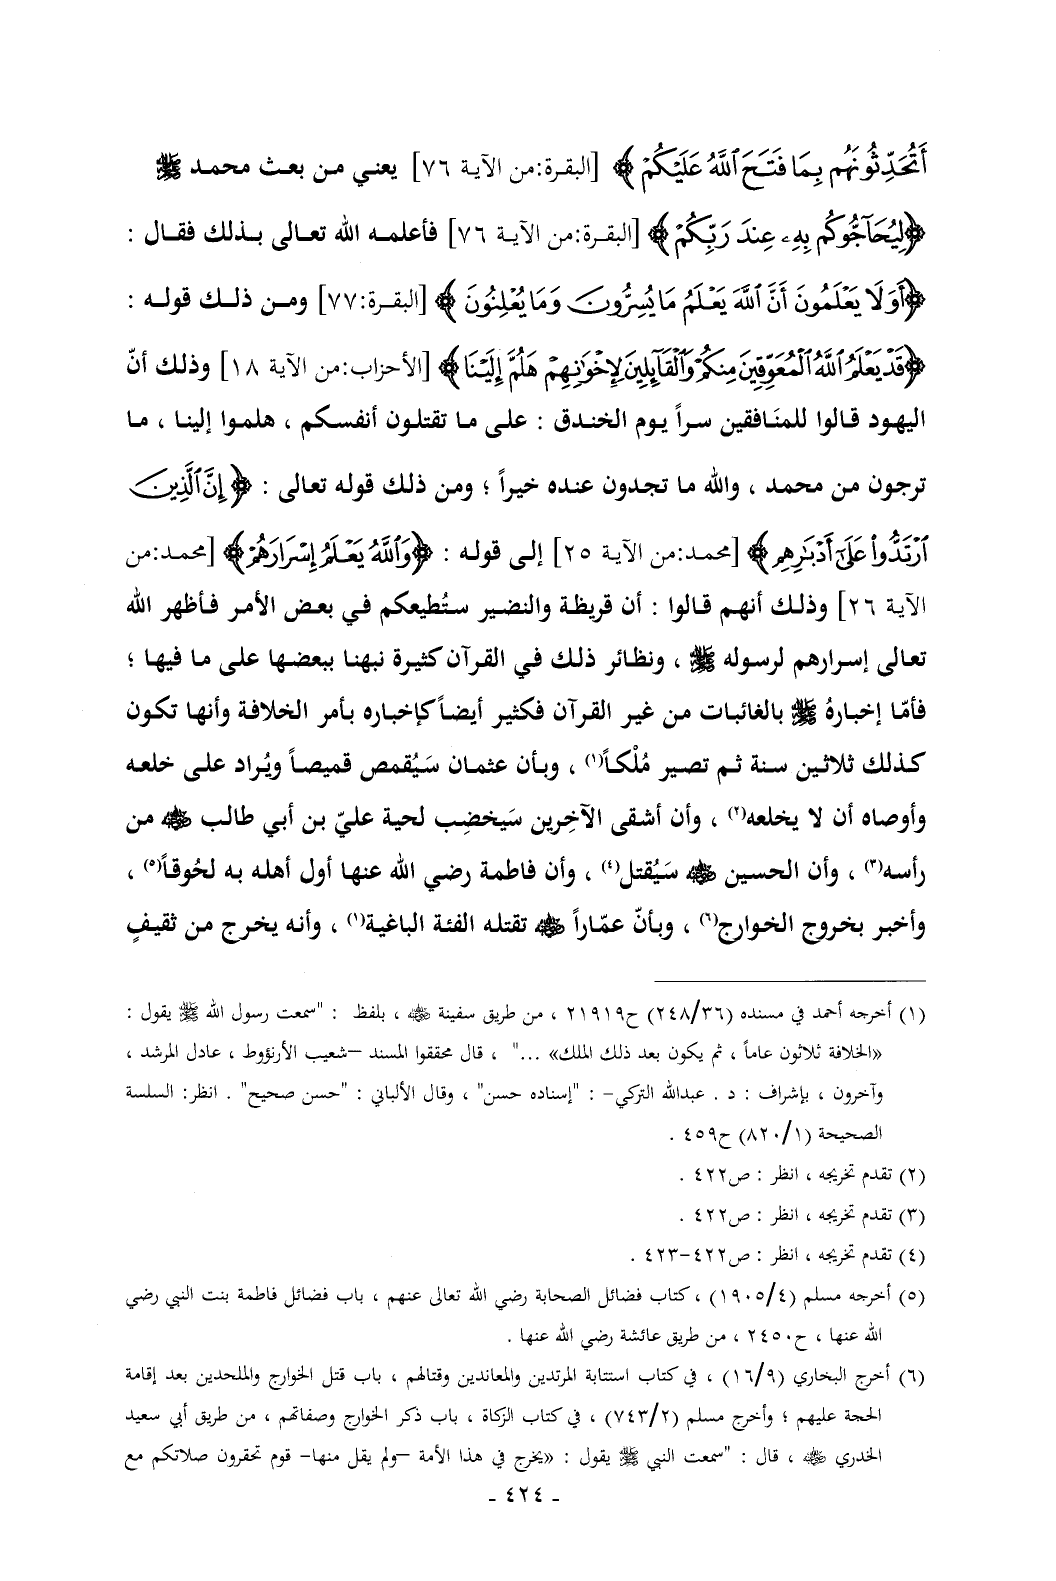 أَتُحَدِّثُونَهُم بِمَا فَتَحَ ٱللَّهُ عَلَيْكُمْ ﴾ [البقرة:من الآية ٧٦] يعني من بعث محمد ﷺ
﴿لِيُحَآجُّوكُم بِهِۦ عِندَ رَبِّكُمْ ﴾ [البقرة:من الآية ٧٦] فأعلمه الله تعالى بذلك فقال :
﴿أَوَلَا يَعْلَمُونَ أَنَّ ٱللَّهَ يَعْلَمُ مَا يُسِرُّونَ وَمَا يُعْلِنُونَ ﴾ [البقرة:٧٧] ومن ذلك قوله :
﴿قَدْ يَعْلَمُ ٱللَّهُ ٱلْمُعَوِّقِينَ مِنكُمْ وَٱلْقَآئِلِينَ لِإِخْوَٰنِهِمْ هَلُمَّ إِلَيْنَا﴾ [الأحزاب:من الآية ١٨] وذلك أنّ
اليهود قالوا للمنَافقين سراً يوم الخندق : على ما تقتلون أنفسكم ، هلموا إلينا ، ما
ترجون من محمد ، والله ما تجدون عنده خيراً ؛ ومن ذلك قوله تعالى : ﴿إِنَّ ٱلَّذِينَ
ٱرْتَدُّوا۟ عَلَىٰٓ أَدْبَٰرِهِم ﴾ [محمد:من الآية ٢٥] إلى قوله : ﴿وَٱللَّهُ يَعْلَمُ إِسْرَارَهُمْ﴾ [محمد:من
الآية ٢٦] وذلك أنهم قالوا : أن قريظة والنضير ستُطيعكم في بعض الأمر فأظهر الله
تعالى إسرارهم لرسوله ﷺ ، ونظائر ذلك في القرآن كثيرة نبهنا ببعضها على ما فيها ؛
فأمّا إخبارهُ ﷺ بالغائبات من غير القرآن فكثير أيضاً كإخباره بأمر الخلافة وأنها تكون
كذلك ثلاثين سنة ثم تصير مُلْكاً(١) ، وبأن عثمان سَيُقمص قميصاً ويُراد على خلعه
وأوصاه أن لا يخلعه(٢) ، وأن أشقى الآخِرين سَيخضِب لحية عليّ بن أبي طالب ﵁ من
رأسه(٣) ، وأن الحسين ﵁ سَيُقتل(٤) ، وأن فاطمة رضي الله عنها أول أهله به لحُوقاً(٥) ،
وأخبر بخروج الخوارج(٦) ، وبأنّ عمّاراً ﵁ تقتله الفئة الباغية(١) ، وأنه يخرج من ثقيفٍ
(١) أخرجه أحمد في مسنده (٢٤٨/٣٦) ح٢١٩١٩ ، من طريق سفينة ﵁ ، بلفظ : "سمعت رسول الله ﷺ يقول :
«الخلافة ثلاثون عاماً ، ثم يكون بعد ذلك الملك» ..." ، قال محققوا المسند –شعيب الأرنؤوط ، عادل المرشد ،
وآخرون ، بإشراف : د . عبدالله التركي– : "إسناده حسن" ، وقال الألباني : "حسن صحيح" . انظر: السلسة
الصحيحة (٨٢٠/١) ح٤٥٩ .
(٢) تقدم تخريجه ، انظر : ص٤٢٢ .
(٣) تقدم تخريجه ، انظر : ص٤٢٢ .
(٤) تقدم تخريجه ، انظر : ص٤٢٢–٤٢٣ .
(٥) أخرجه مسلم (١٩٠٥/٤) ، كتاب فضائل الصحابة رضي الله تعالى عنهم ، باب فضائل فاطمة بنت النبي رضي
الله عنها ، ح٢٤٥٠ ، من طريق عائشة رضي الله عنها .
(٦) أخرج البخاري (١٦/٩) ، في كتاب استتابة المرتدين والمعاندين وقتالهم ، باب قتل الخوارج والملحدين بعد إقامة
الحجة عليهم ؛ وأخرج مسلم (٧٤٣/٢) ، في كتاب الزكاة ، باب ذكر الخوارج وصفاتهم ، من طريق أبي سعيد
الخدري ﵁ ، قال : "سمعت النبي ﷺ يقول : «يخرج في هذا الأمة –ولم يقل منها– قوم تحقرون صلاتكم مع
- ٤٢٤ -